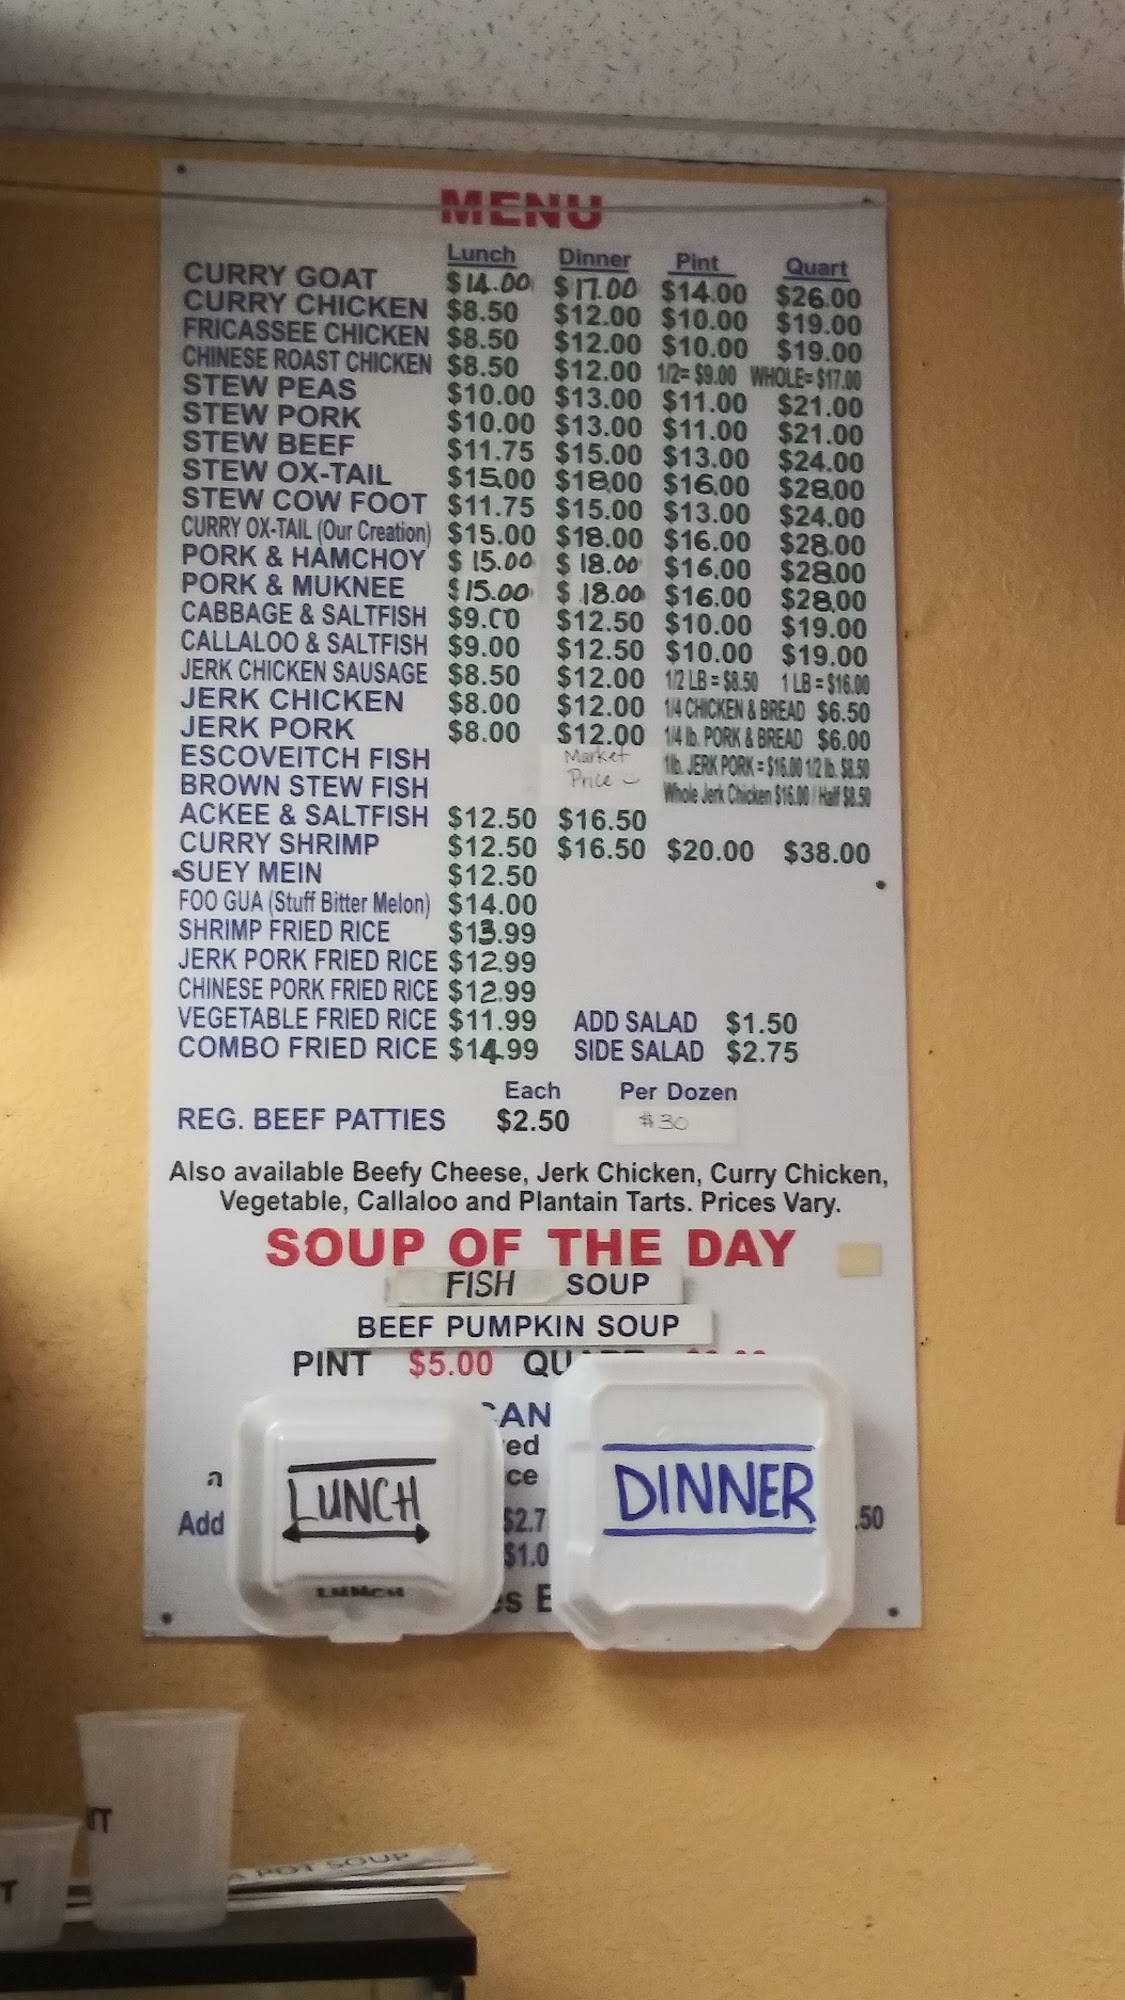 MENU
Lunch Dinner Pint Quart
CURRY GOAT $14.00 $17.00 $14.00 $26.00
CURRY CHICKEN $8.50 $12.00 $10.00 $19.00
FRICASSEE CHICKEN $8.50 $12.00 $10.00 $19.00
CHINESE ROAST CHICKEN $8.50 $12.00 1/2= $9.00 WHOLE= $17.00
STEW PEAS $10.00 $13.00 $11.00 $21.00
STEW PORK $10.00 $13.00 $11.00 $21.00
STEW BEEF $11.75 $15.00 $13.00 $24.00
STEW OX-TAIL $15.00 $18.00 $16.00 $28.00
STEW COW FOOT $11.75 $15.00 $13.00 $24.00
CURRY OX-TAIL (Our Creation) $15.00 $18.00 $16.00 $28.00
PORK & HAMCHOY $15.00 $18.00 $16.00 $28.00
PORK & MUKNEE $15.00 $18.00 $16.00 $28.00
CABBAGE & SALTFISH $9.00 $12.50 $10.00 $19.00
CALLALOO & SALTFISH $9.00 $12.50 $10.00 $19.00
JERK CHICKEN SAUSAGE $8.50 $12.00 1/2 LB = $8.50 1 LB = $16.00
JERK CHICKEN $8.00 $12.00 1/4 CHICKEN & BREAD $6.50
JERK PORK $8.00 $12.00 1/4 lb. PORK & BREAD $6.00
ESCOVEITCH FISH Market 1lb. JERK PORK = $16.00 1/2 lb. $8.50
BROWN STEW FISH Price Whole Jerk Chicken $16.00 / Half $8.50
ACKEE & SALTFISH $12.50 $16.50
CURRY SHRIMP $12.50 $16.50 $20.00 $38.00
SUEY MEIN $12.50
FOO GUA (Stuff Bitter Melon) $14.00
SHRIMP FRIED RICE $13.99
JERK PORK FRIED RICE $12.99
CHINESE PORK FRIED RICE $12.99
VEGETABLE FRIED RICE $11.99 ADD SALAD $1.50
COMBO FRIED RICE $14.99 SIDE SALAD $2.75
Each Per Dozen
REG. BEEF PATTIES $2.50 $30
Also available Beefy Cheese, Jerk Chicken, Curry Chicken,
Vegetable, Callaloo and Plantain Tarts. Prices Vary.
SOUP OF THE DAY
FISH SOUP
BEEF PUMPKIN SOUP
PINT $5.00
LUNCH DINNER
Add .50
LUNCH
POT SOUP